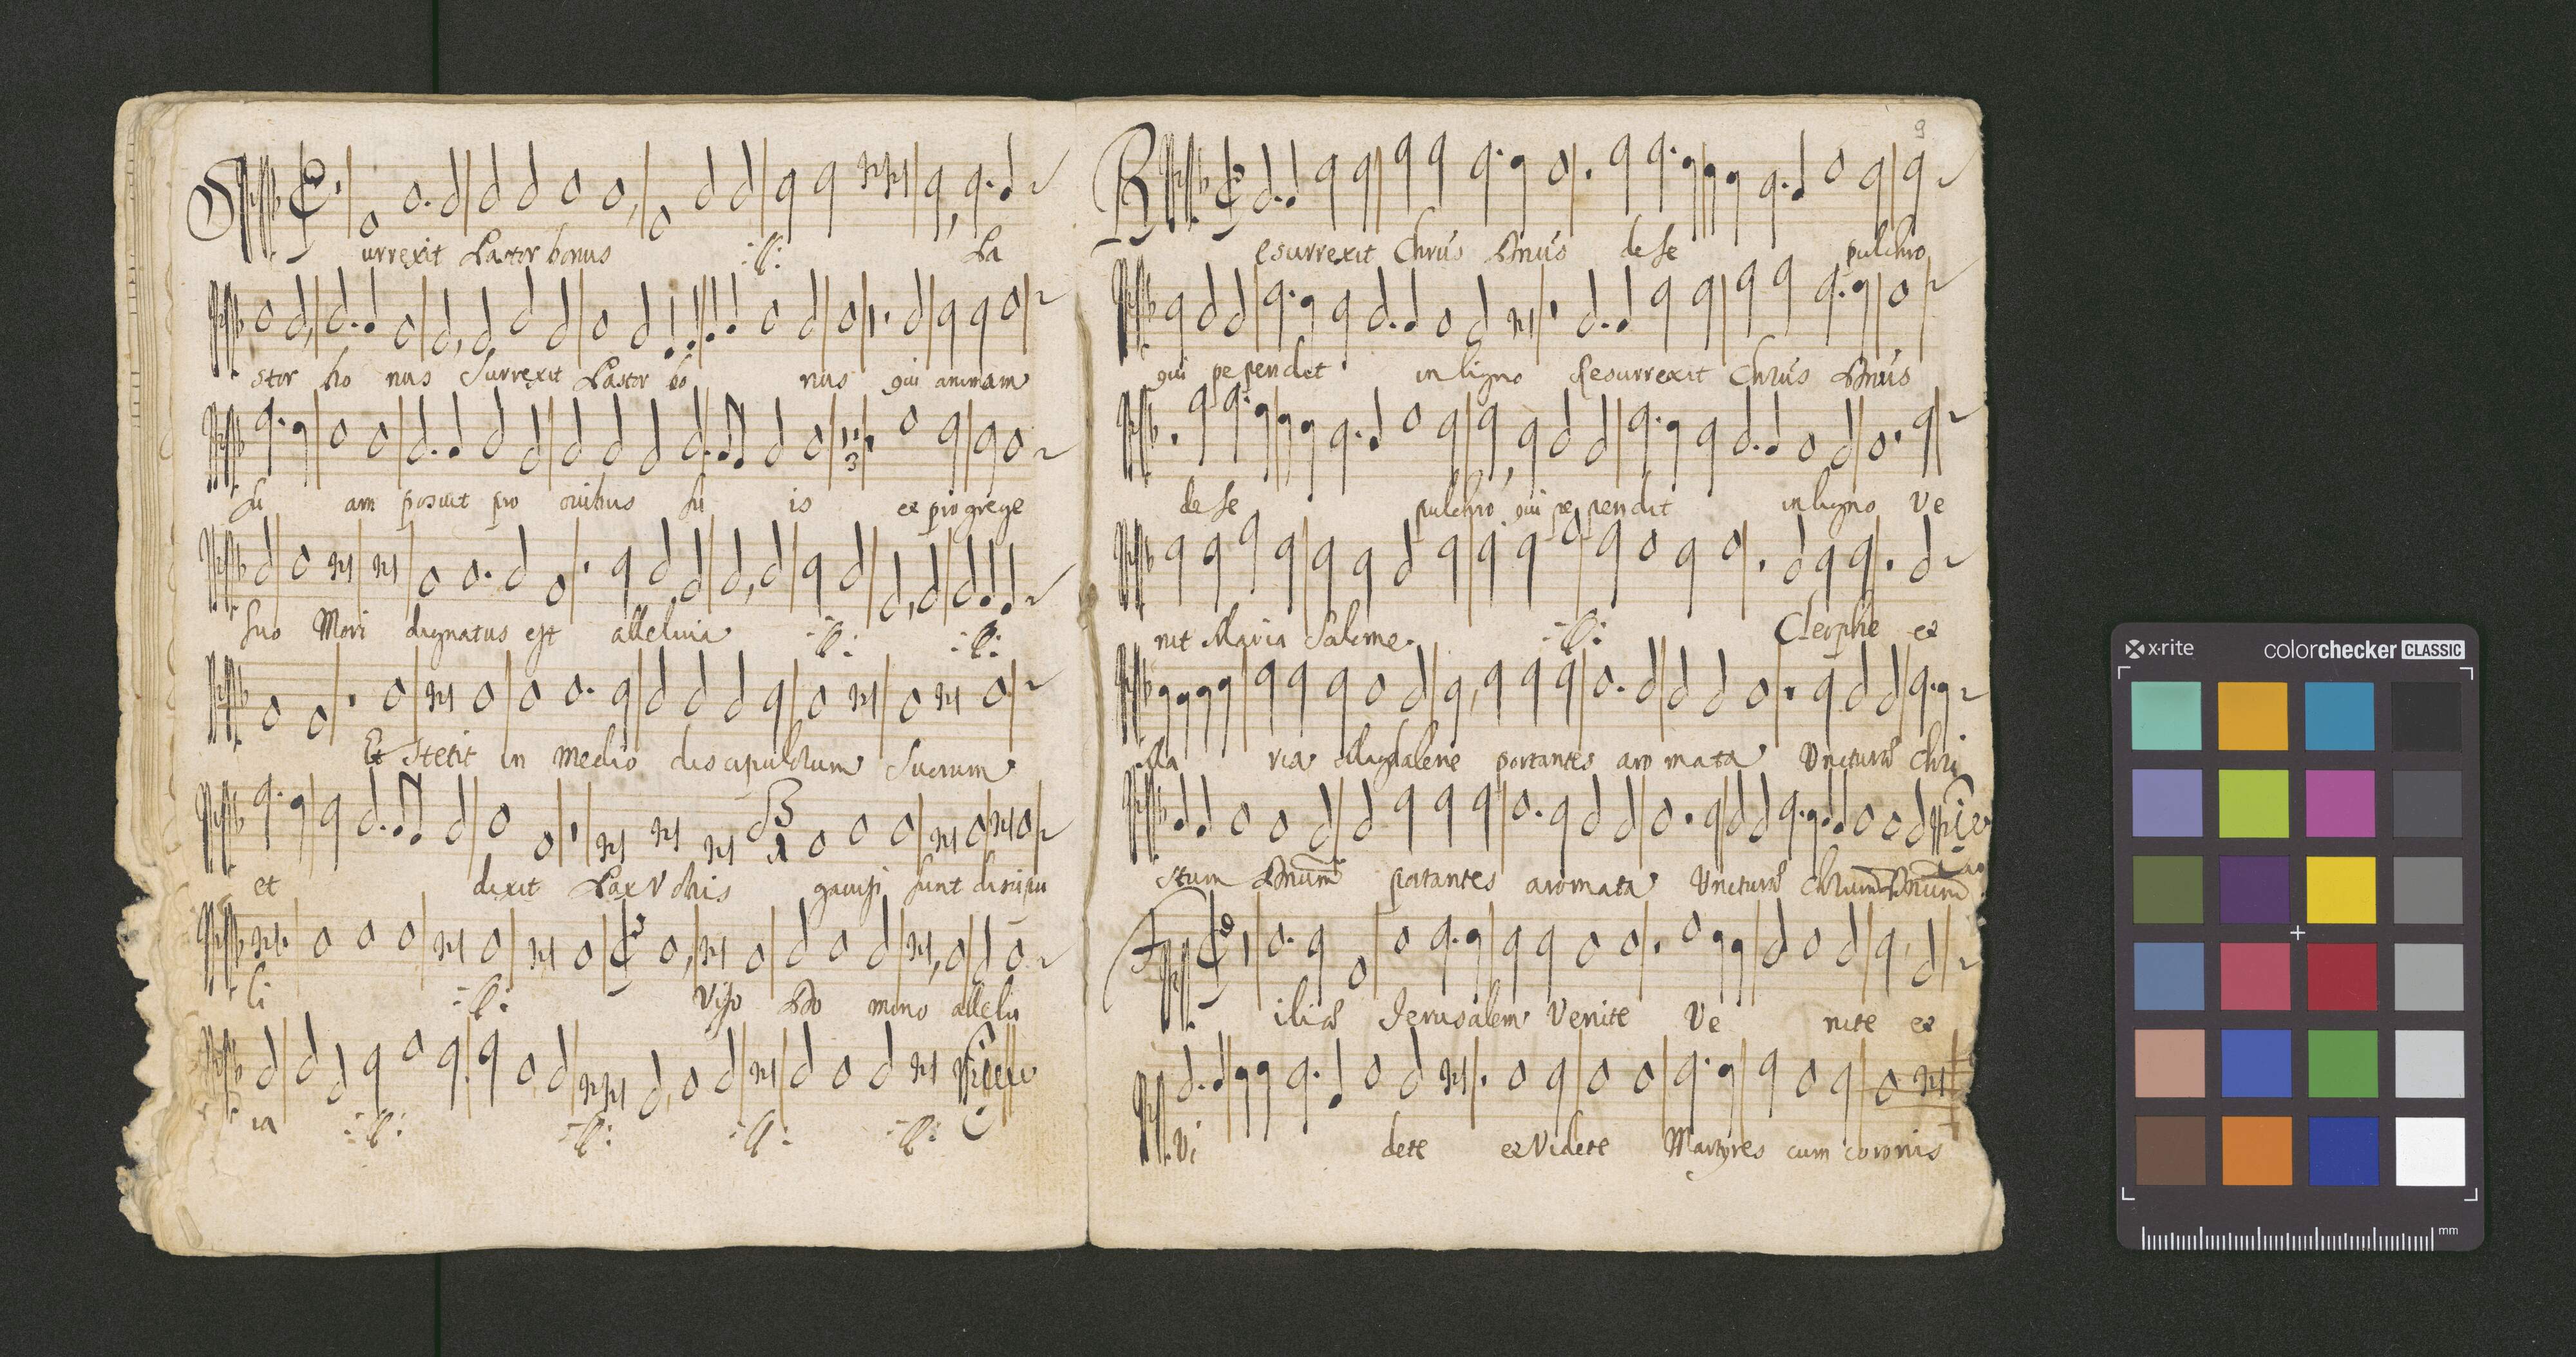 Surrexit Pastor bonus :ll: Pa
stor bo nus Surrexit Pastor bo nus qui animam
su am posuit pro ovibus su is et pro grege
suo Mori dignatus est alleluia :ll: :ll:
Et Stetit in medio discipulorum suorum
et dixit Pax Vobis gavisi sunt discipu
li :ll: Viso Do mino allelu
ia :ll: :ll: :ll: :ll:
9
Resurrexit Chrūs Dnūs de se pulchro
qui pependit in ligno Resurrexit Chrūs Dnūs
de se pulchro qui pe pendit in ligno Ve
nit Maria Salome :ll: Cleophe et
Ma ria Magdalene portantes aro mata Chri
stum Dnum portantes aromata Chrum Dnum
Filiae Jerusalem Venite Ve nite et
Vi dete et Videte Martyres cum coronis
x-rite colorchecker CLASSIC
mm